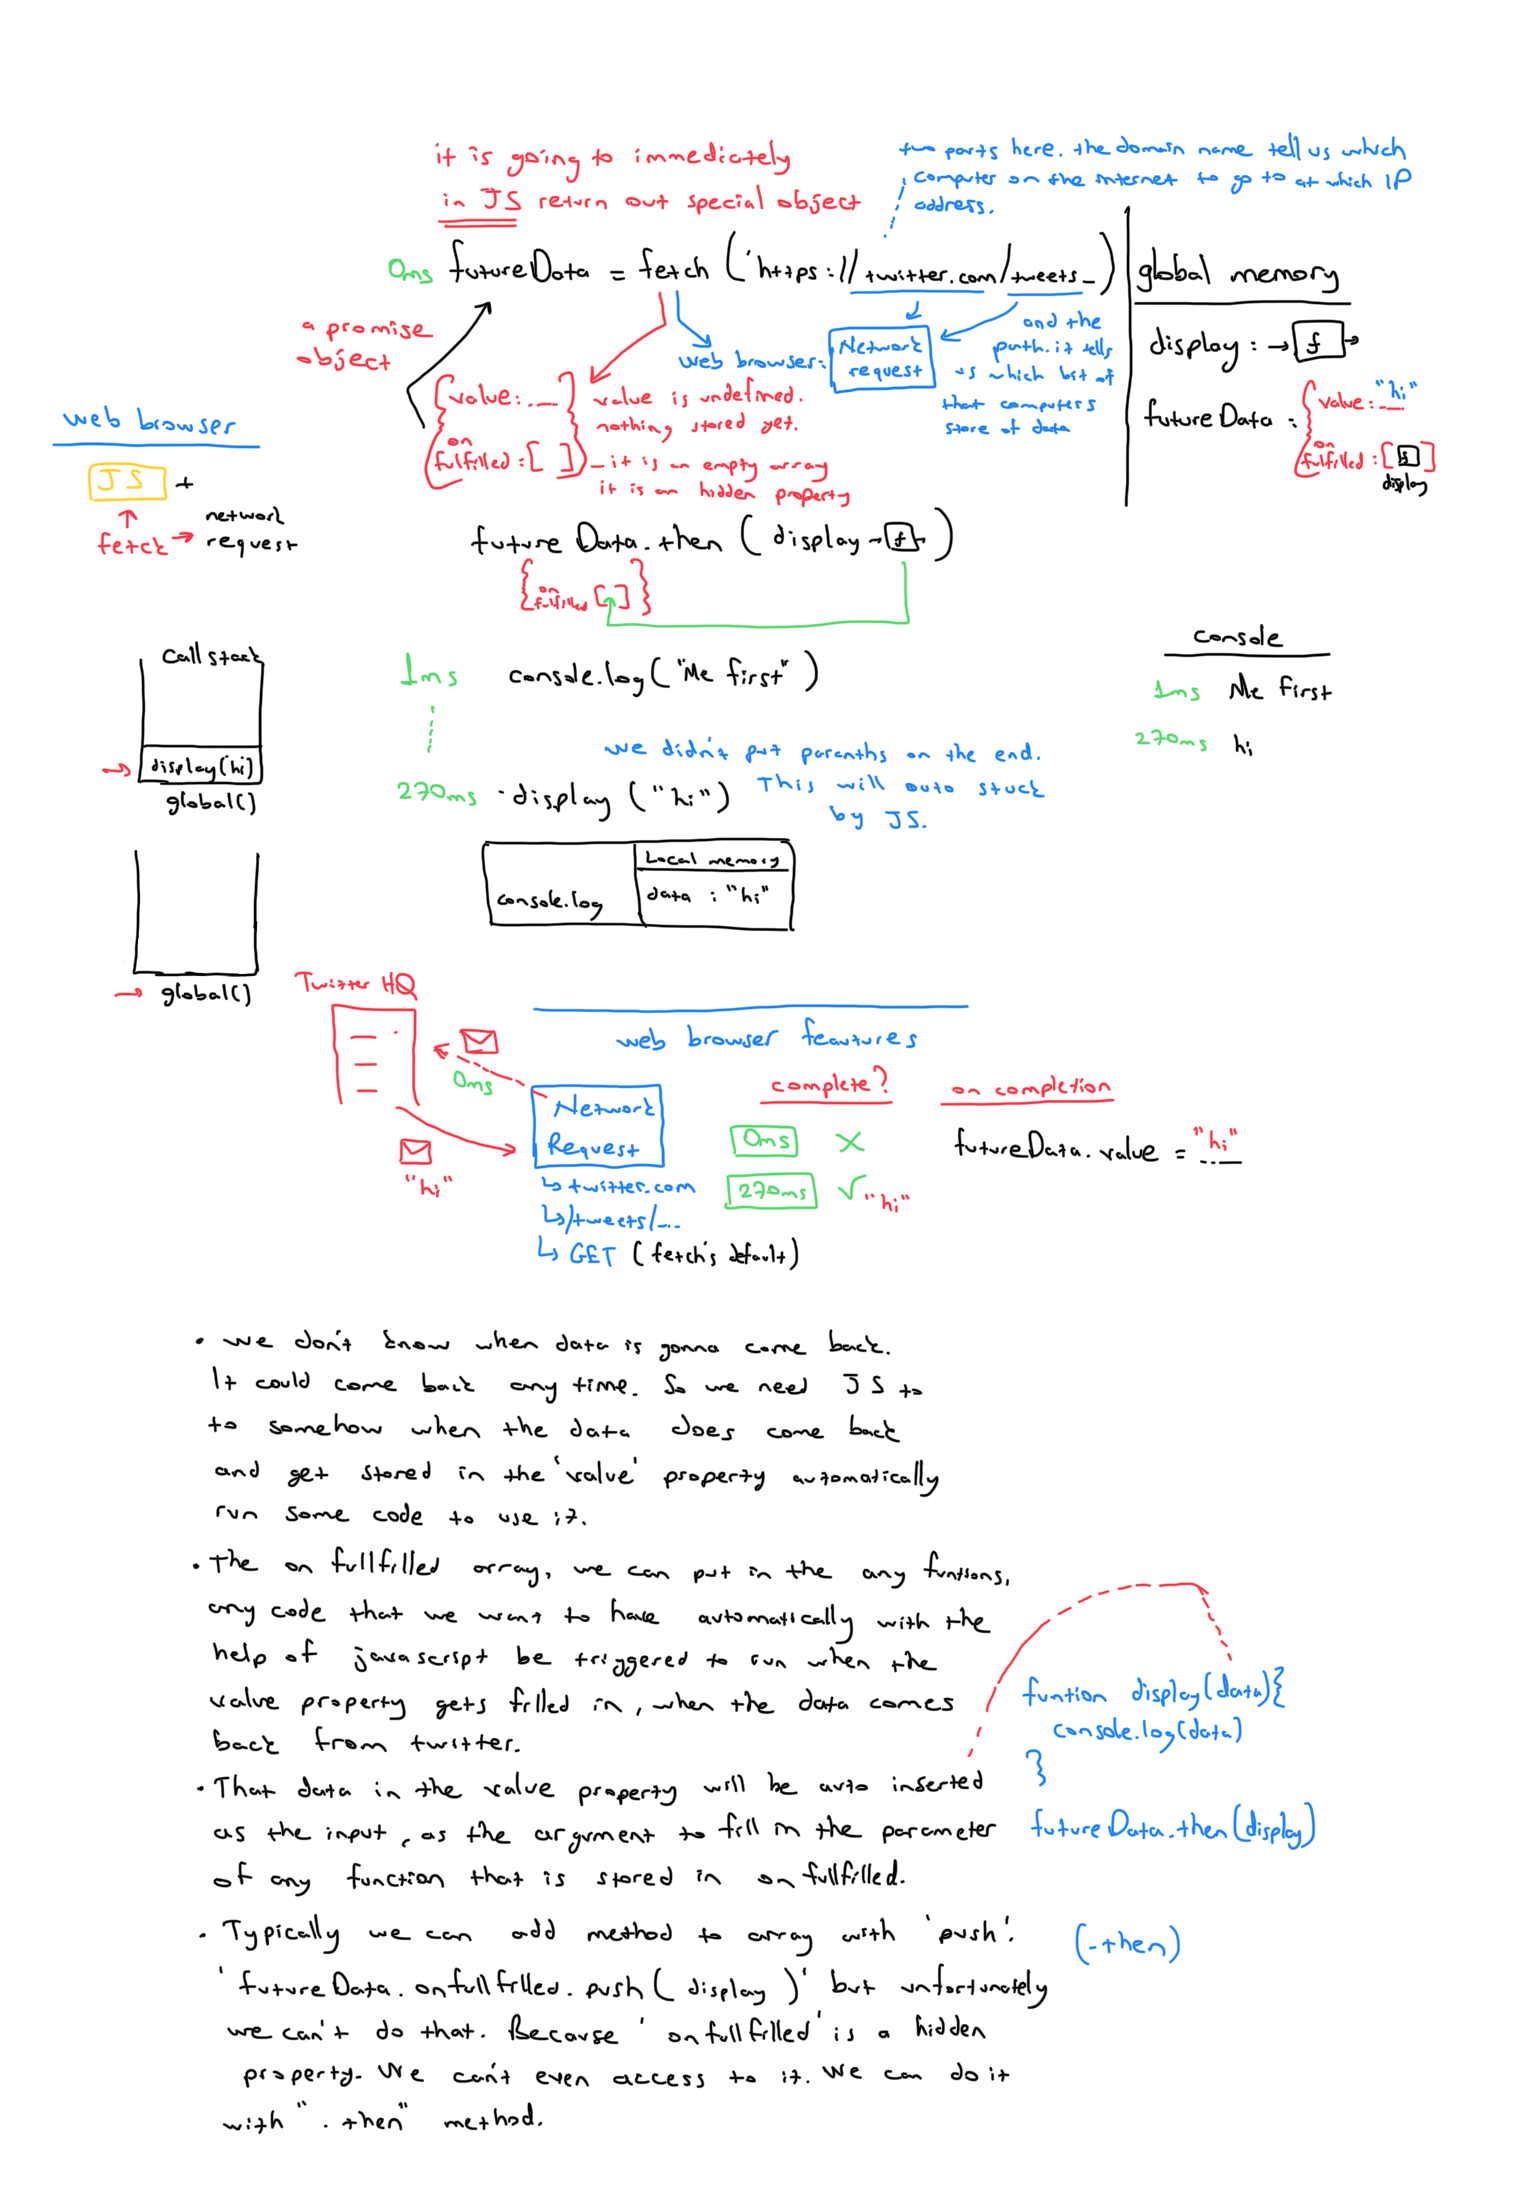 it is going to immedictely
in JS return out special object
two parts here. the domain name tell us which
computer on the internet to go to at which IP
address.
0ms futureData = fetch ('https://twitter.com/tweets_)
a promise
object
{value: __
on
fulfilled : [ ]}
value is undefined.
nothing stored yet.
_it is an empty array
it is an hidden property
web browser:
Network
request
and the
path. it tells
us which bit of
that computers
store of data
global memory
display : → f
futureData :
value: "hi"
on
fulfilled : [f]
display
web browser
JS +
fetch → network
request
futureData.then ( display - f )
{on
fulfilled [ ]}
Call stack
display(hi)
global()
1ms console.log("Me first")
console
1ms Me First
270ms hi
we didn't put paranths on the end.
This will auto stuck
by JS.
270ms · display ("hi")
Local memory
console.log
data : "hi"
global()
Twitter HQ
web browser feautures
0ms
"hi"
Network
Request
↳ twitter.com
↳ /tweets/_..
↳ GET (fetch's default)
complete?
0ms X
270ms ✓ "hi"
on completion
futureData.value = "hi"
• we don't know when data is gonna come back.
It could come back any time. So we need JS to
to somehow when the data does come back
and get stored in the 'value' property automatically
run some code to use it.
• The on fullfilled array, we can put in the any funtions,
any code that we want to have automatically with the
help of javascript be triggered to run when the
value property gets filled in, when the data comes
back from twitter.
• That data in the value property will be auto inserted
as the input, as the argument to fill in the parameter
of any function that is stored in onfullfilled.
funtion display(data){
console.log(data)
}
futureData.then(display)
• Typically we can add method to array with 'push'.
(-then)
'futureData.onfullfilled.push( display )' but unfortunately
we can't do that. Because 'onfullfilled' is a hidden
property. We can't even access to it. We can do it
with ".then" method.